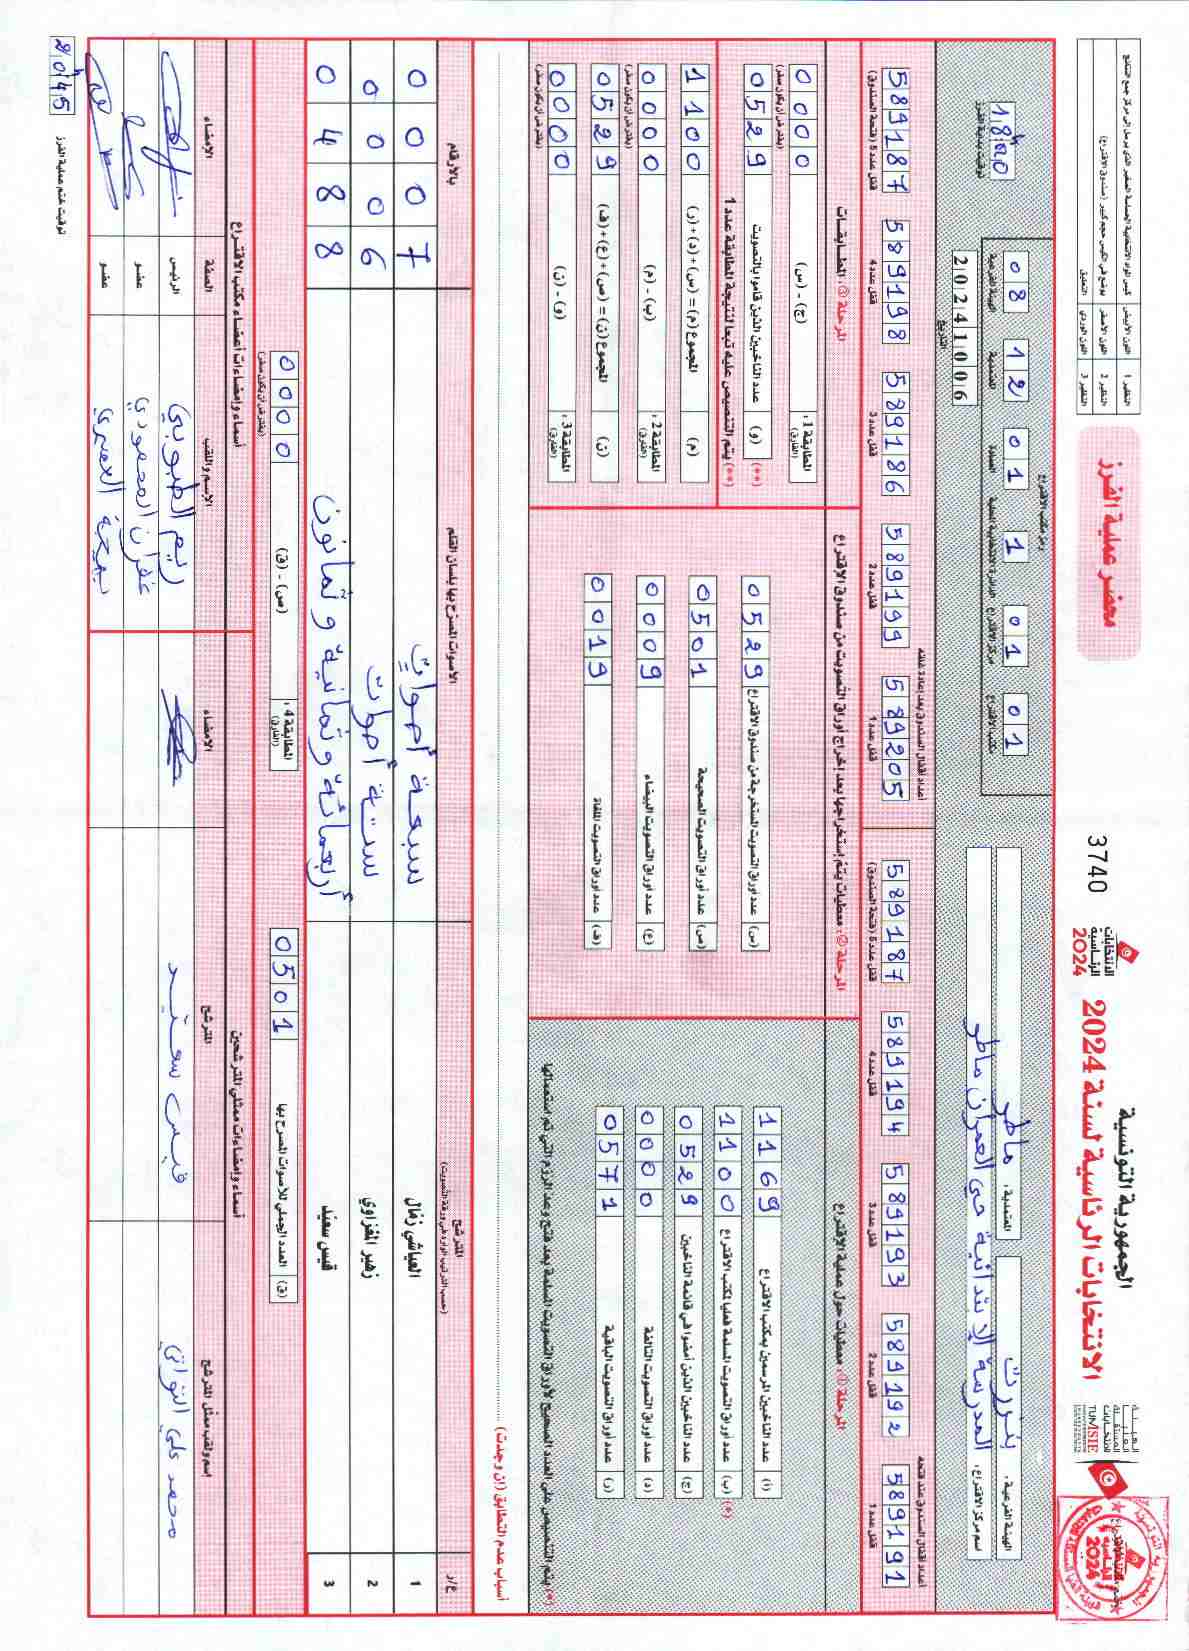 الجمهورية التونسية
الانتخابات الرئاسية لسنة 2024
الانتخابات
الرئاسية
2024
3740
محضر عملية الفرز
النظير 1 اللون الأبيض
النظير 2 اللون الأصفر يوضع في الكيس حجم كبير (صندوق الاقتراع)
النظير 3 اللون الوردي التعليق
الهيئة الفرعية: بنزرت
المعتمدية: ماطر
اسم مركز الاقتراع: المدرسة الابتدائية حي العمران ماطر
رمز مكتب الاقتراع
08 12 01 1 01 01
الهيئة الفرعية المعتمدية العمادة الدائرة الانتخابية المحلية مركز الاقتراع مكتب الاقتراع
التاريخ
20241006
توقيت بداية الفرز
أعداد أقفال الصندوق عند فتحه
589191 قفل عدد 1
589192 قفل عدد 2
589193 قفل عدد 3
589194 قفل عدد 4
589187 قفل عدد 5 (فتحة الصندوق)
أعداد أقفال الصندوق بعد إعادة غلقه
589205 قفل عدد 1
589199 قفل عدد 2
589186 قفل عدد 3
589198 قفل عدد 4
589187 قفل عدد 5 (فتحة الصندوق)
المرحلة ①: معطيات حول عملية الاقتراع
(أ) عدد الناخبين المرسمين بمكتب الاقتراع 1169
(*) (ب) عدد أوراق التصويت المسلمة فعليا لمكتب الاقتراع 1100
(ج) عدد الناخبين الذين أمضوا في قائمة الناخبين 0529
(د) عدد أوراق التصويت التالفة 0000
(ر) عدد أوراق التصويت الباقية 0571
(*) يتم التنصيص على العدد الصحيح لأوراق التصويت المسلمة بعد فتح وعد الرزم التي تم استعمالها
المرحلة ②: معطيات يتم إستخراجها بعد إخراج أوراق التصويت من صندوق الاقتراع
(س) عدد أوراق التصويت المستخرجة من صندوق الاقتراع 0529
(ص) عدد أوراق التصويت الصحيحة 0501
(ع) عدد أوراق التصويت البيضاء 0009
(ف) عدد أوراق التصويت الملغاة 0019
المرحلة ③: المطابقات
المطابقة 1: (الفارق) (ج) - (س) 0000 (يفترض أن يكون صفر)
(**) (و) عدد الناخبين الذين قاموا بالتصويت 0529
(**) يتم التنصيص عليه تبعا لنتيجة المطابقة عدد 1
(م) المجموع (م) = (س)+(د)+(ر) 1100
المطابقة 2: (الفارق) (ب) - (م) 0000 (يفترض أن يكون صفر)
(ن) المجموع (ن) = (ص)+(ع)+(ف) 0529
المطابقة 3: (الفارق) (و) - (ن) 0000 (يفترض أن يكون صفر)
أسباب عدم التطابق (إن وجدت)
ع/ر المترشح (حسب الترتيب الوارد في ورقة التصويت) الأصوات المصرح بها بلسان القلم بالأرقام
1 العياشي زمال سبعة أصوات 0007
2 زهير المغزاوي ستة أصوات 0006
3 قيس سعيد أربعمائة وثمانية وثمانون 0488
(ق) العدد الجملي للأصوات المصرح بها 0501
المطابقة 4: (الفارق) (ص) - (ق) 0000 (يفترض أن يكون صفر)
أسماء وإمضاءات ممثلي المترشحين
اسم ولقب ممثل المترشح المترشح الامضاء
محمد علي النواتي قيس سعيد
أسماء وإمضاءات أعضاء مكتب الاقتراع
الإسم واللقب الصفة الإمضاء
ريم الطبوبي الرئيس
غفران المحمودي عضو
بهيجة العمري عضو
توقيت ختم عملية الفرز
20h45